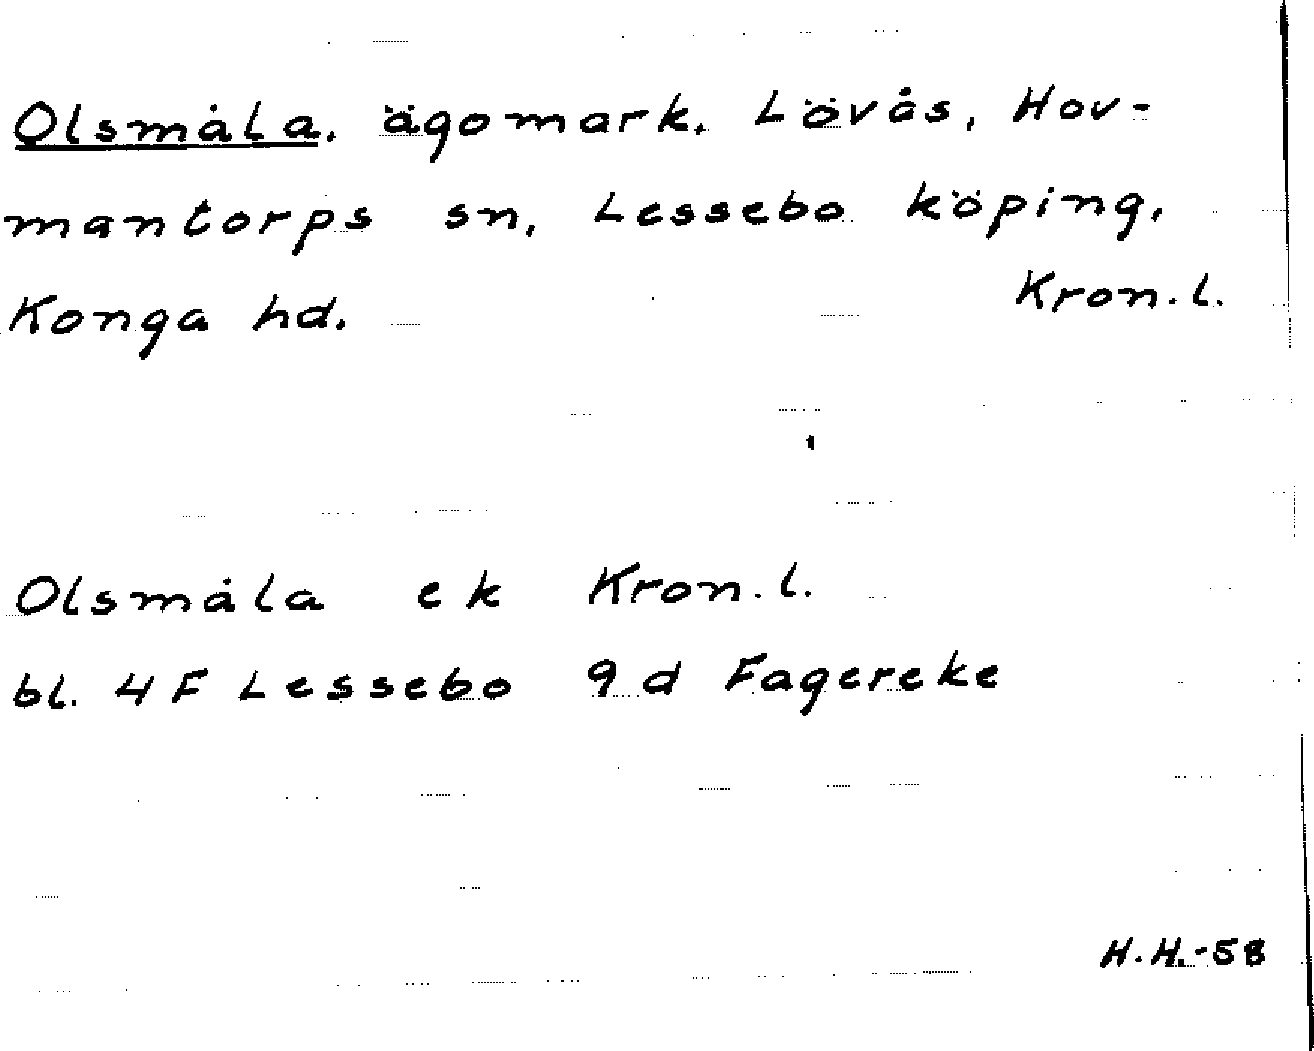 Olsmåla, ägomark, Lövås, Hov-
mantorps sn, Lessebo köping,
Konga hd. Kron.l.
Olsmåla ek Kron.l.
bl. 4 F Lessebo 9 d Fagereke
H.H.-58